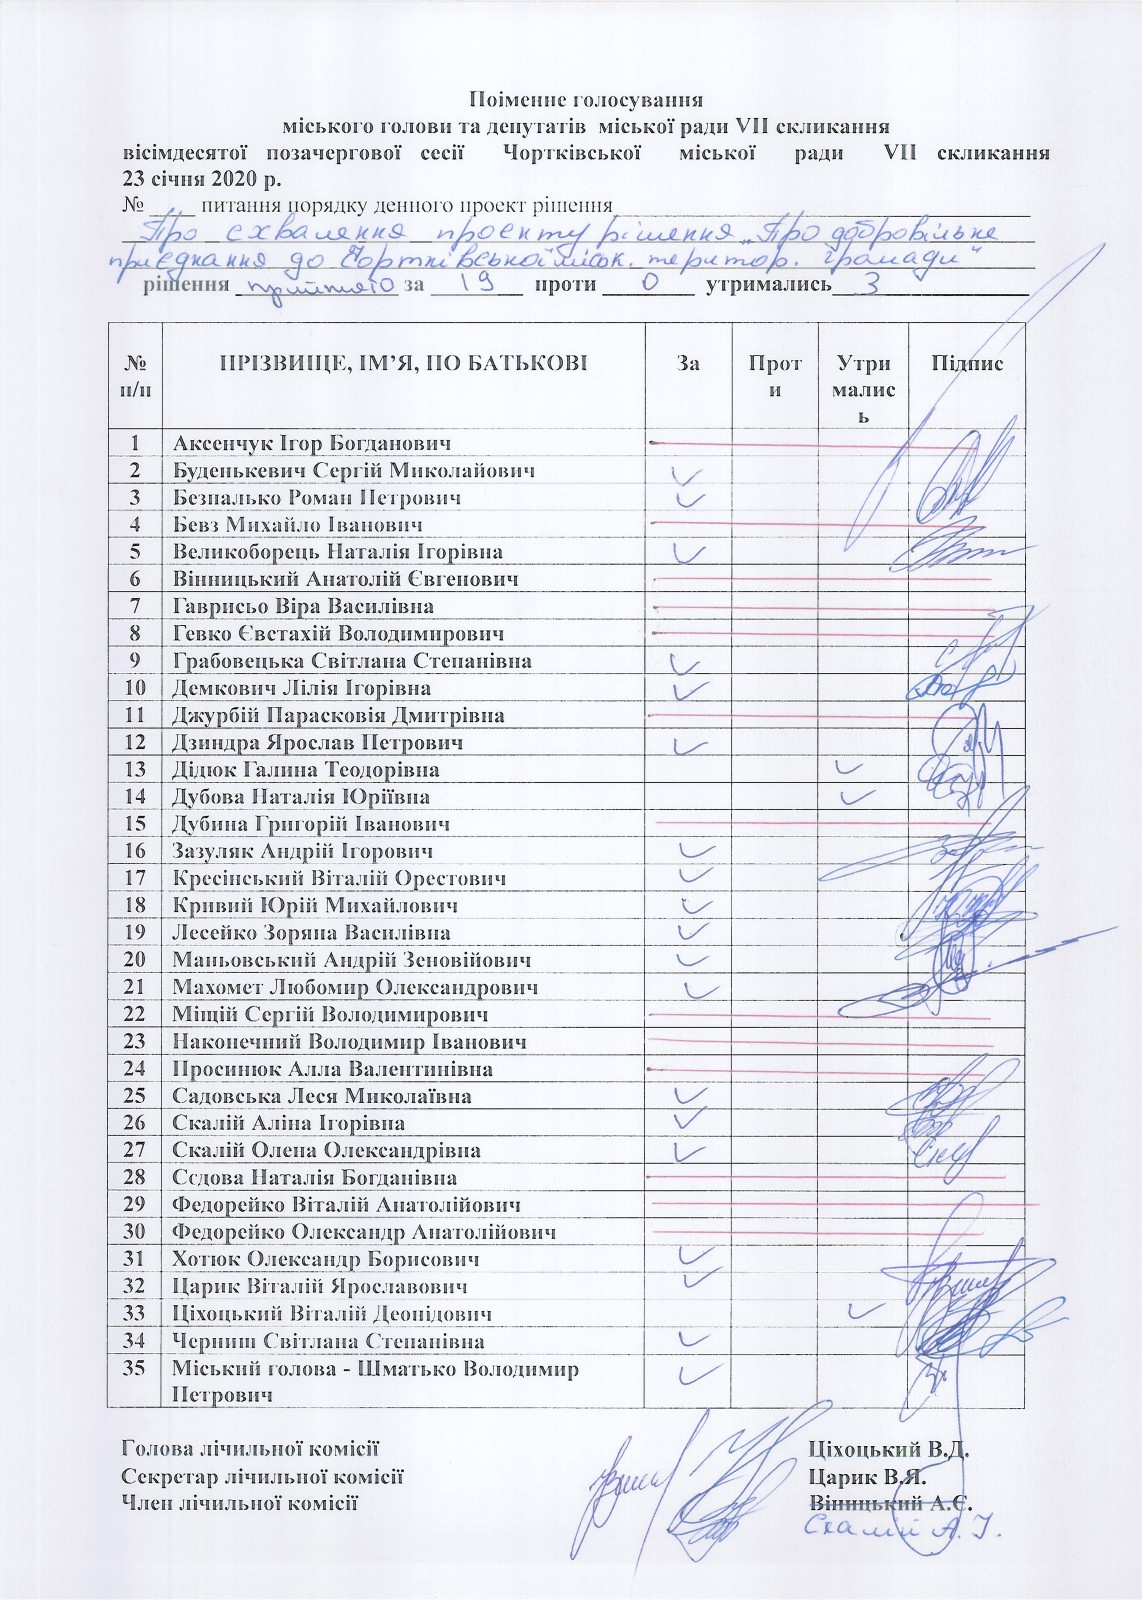 Поіменне голосування
міського голови та депутатів міської ради VII скликання
вісімдесятої позачергової сесії Чортківської міської ради VII скликання
23 січня 2020 р.
№ ____ питання порядку денного проект рішення
Про схвалення проєкту рішення „Про добровільне
приєднання до Чортківської міськ. територ. громади"
рішення прийнято за 19 проти 0 утримались 3
№ п/п ПРІЗВИЩЕ, ІМ’Я, ПО БАТЬКОВІ За Проти Утрималис ь Підпис
1 Аксенчук Ігор Богданович
2 Буденькевич Сергій Миколайович
3 Безпалько Роман Петрович
4 Бевз Михайло Іванович
5 Великоборець Наталія Ігорівна
6 Вінницький Анатолій Євгенович
7 Гаврисьо Віра Василівна
8 Гевко Євстахій Володимирович
9 Грабовецька Світлана Степанівна
10 Демкович Лілія Ігорівна
11 Джурбій Парасковія Дмитрівна
12 Дзиндра Ярослав Петрович
13 Дідюк Галина Теодорівна
14 Дубова Наталія Юріївна
15 Дубина Григорій Іванович
16 Зазуляк Андрій Ігорович
17 Кресінський Віталій Орестович
18 Кривий Юрій Михайлович
19 Лесейко Зоряна Василівна
20 Маньовський Андрій Зеновійович
21 Махомет Любомир Олександрович
22 Міщій Сергій Володимирович
23 Наконечний Володимир Іванович
24 Просинюк Алла Валентинівна
25 Садовська Леся Миколаївна
26 Скалій Аліна Ігорівна
27 Скалій Олена Олександрівна
28 Сєдова Наталія Богданівна
29 Федорейко Віталій Анатолійович
30 Федорейко Олександр Анатолійович
31 Хотюк Олександр Борисович
32 Царик Віталій Ярославович
33 Ціхоцький Віталій Деонідович
34 Черниш Світлана Степанівна
35 Міський голова - Шматько Володимир
Петрович
Голова лічильної комісії Ціхоцький В.Д.
Секретар лічильної комісії Царик В.Я.
Член лічильної комісії Вінницький А.Є.
Скалій А.І.